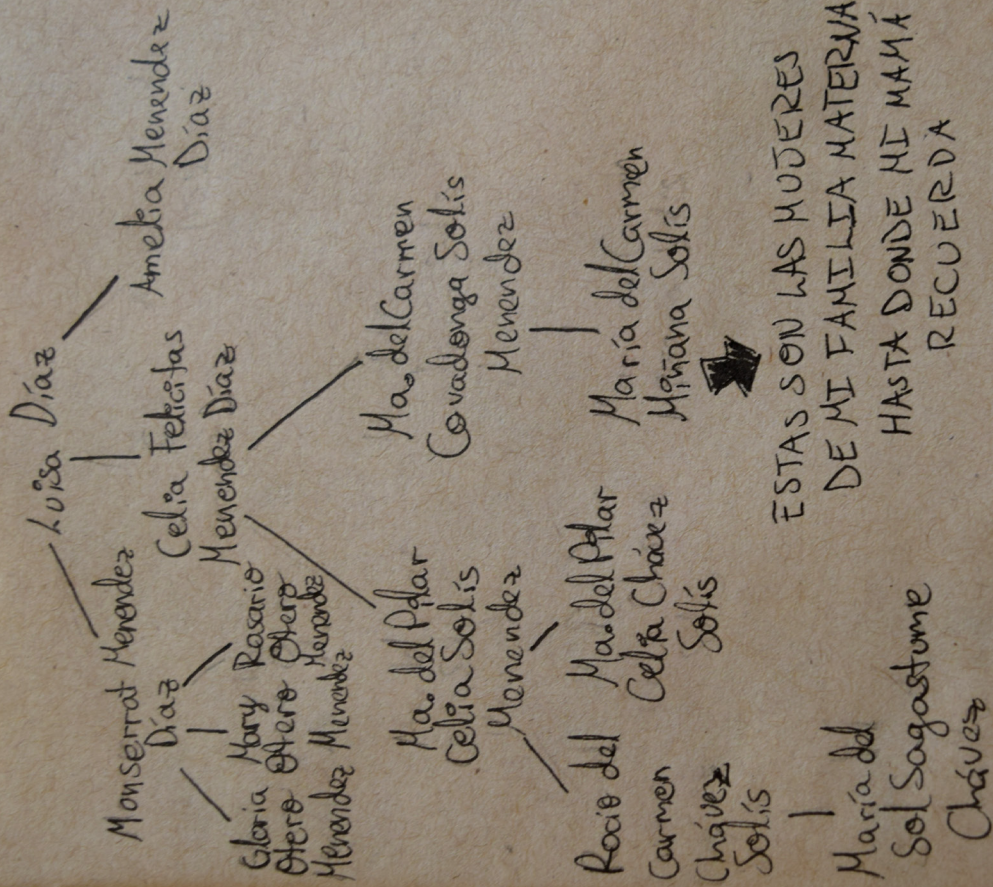 Luisa Díaz
Monserrat Menendez
Díaz
Celia Felicitas
Menendez Díaz
Amelia Menendez
Díaz
Gloria Mary Rosario
Otero Otero Otero
Menendez Menendez Menendez
Ma. del Pilar
Celia Solís
Menendez
Ma. del Carmen
Covadonga Solís
Menendez
Rocio del
Carmen
Chávez
Solís
Ma. del Pilar
Celia Chávez
Solís
María del Carmen
Miñana Solís
María del
Sol Sagastume
Chávez
ESTAS SON LAS MUJERES
DE MI FAMILIA MATERNA
HASTA DONDE MI MAMÁ
RECUERDA